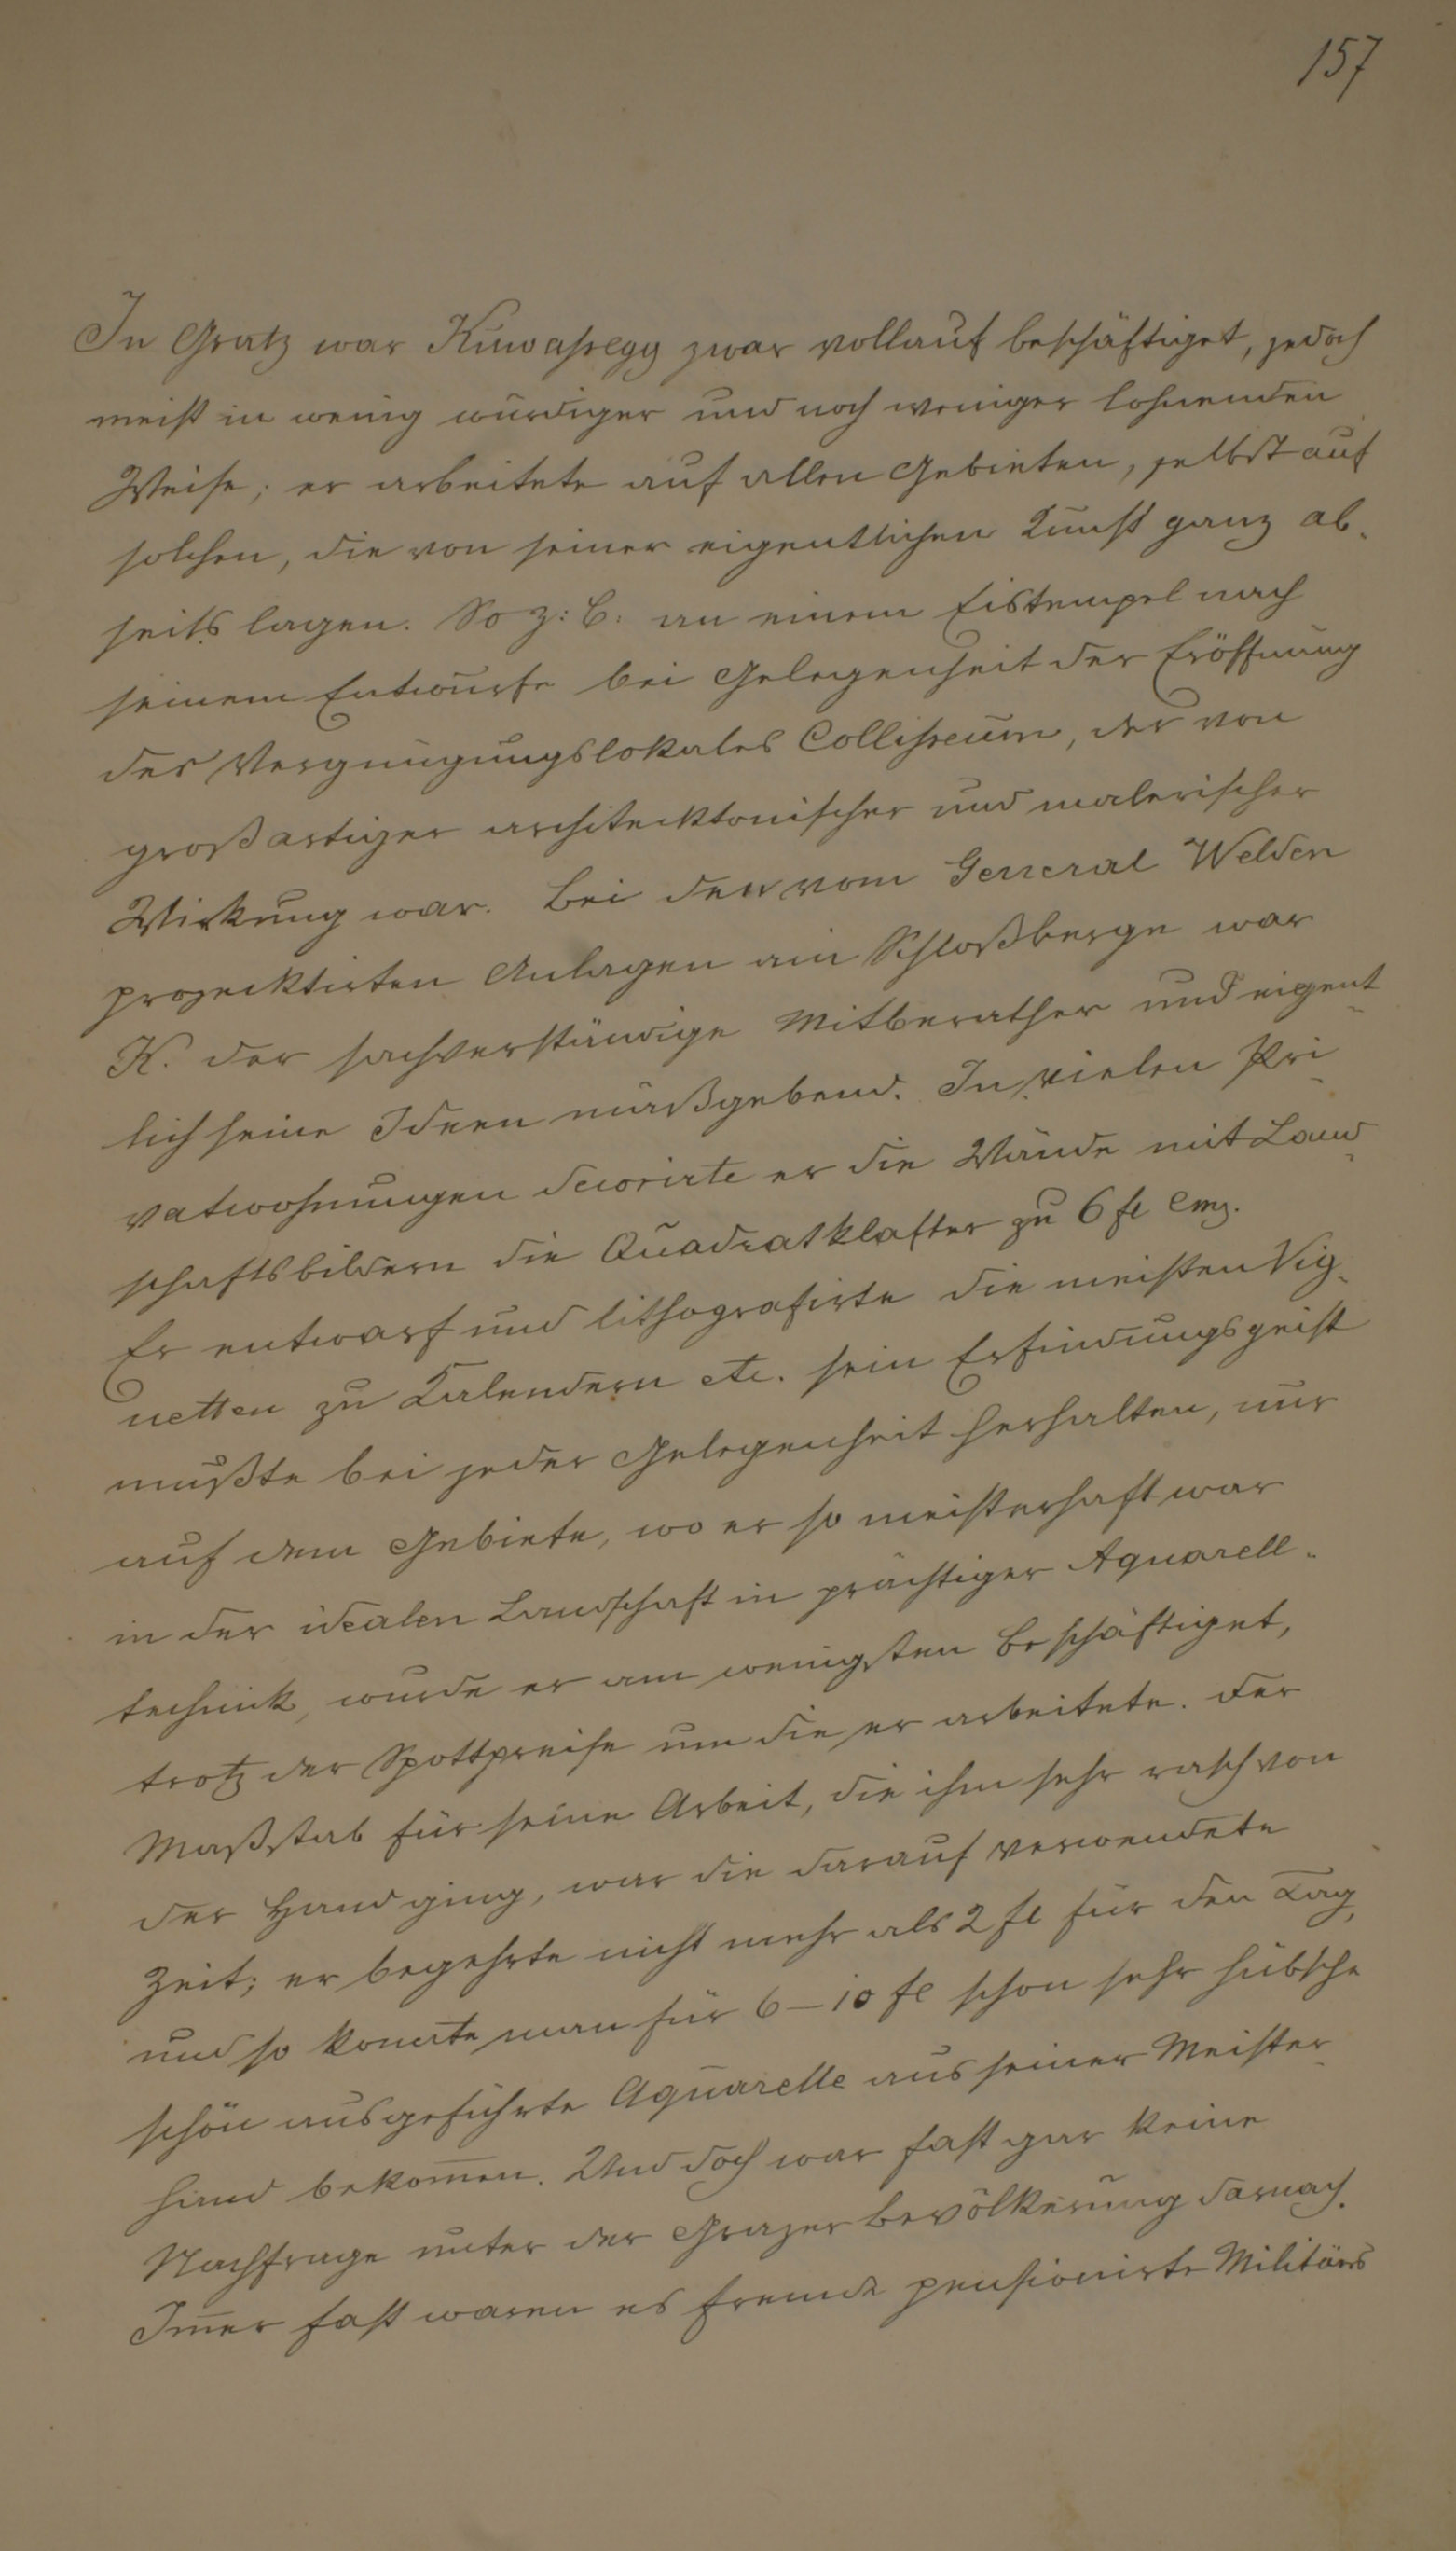 157
In Gratz war Kuwaßegg zwar vollauf beschäftiget, jedoch
meist in wenig würdiger und noch weniger lohnenden
Weise; er arbeitete auf allen Gebieten, selbst auf
solchen, die von seiner eigentlichen Kunst ganz ab-
seits lagen. So z: B: an einem Eistempel nach
seinem Entwurfe bei Gelegenheit der Eröffnung
des Vergnügungslokales Collißeum, der von
großartiger architecktonischer und malerischer
Wirkung war. Bei den vom General Welden
projecktirten Anlagen am Schloßberge war
K. der sachverständige Mitberather und eigent-
lich seine Ideen maßgebend. In vielen Pri-
vatwohnungen decorirte er die Wände mit Land-
schaftsbildern die Quadratklafter zu 6 fl Cmz.
Er entwarf und lithografirte die meisten Vig-
netten zu Kalendern etc. sein Erfindungsgeist
mußte bei jeder Gelegenheit herhalten, nur
auf dem Gebiete, wo er so meisterhaft war
in der idealen Landschaft in prächtiger Aquarell-
technick, wurde er am wenigsten beschäftiget,
trotz der Spottpreise um die er arbeitete. Der
Maßstab für seine Arbeit, die ihm sehr rasch von
der Hand ging, war die darauf verwendete
Zeit; er begehrte nicht mehr als 2 fl für den Tag,
und so konnte man für 6–10 fl schon sehr hübsche
schön ausgeführte Aquarelle aus seiner Meister-
hand bekom̄en. Und doch war fast gar keine
Nachfrage unter der Grazer Bevölkerung darnach.
Im̄er fast waren es fremde pensionirte Militärs